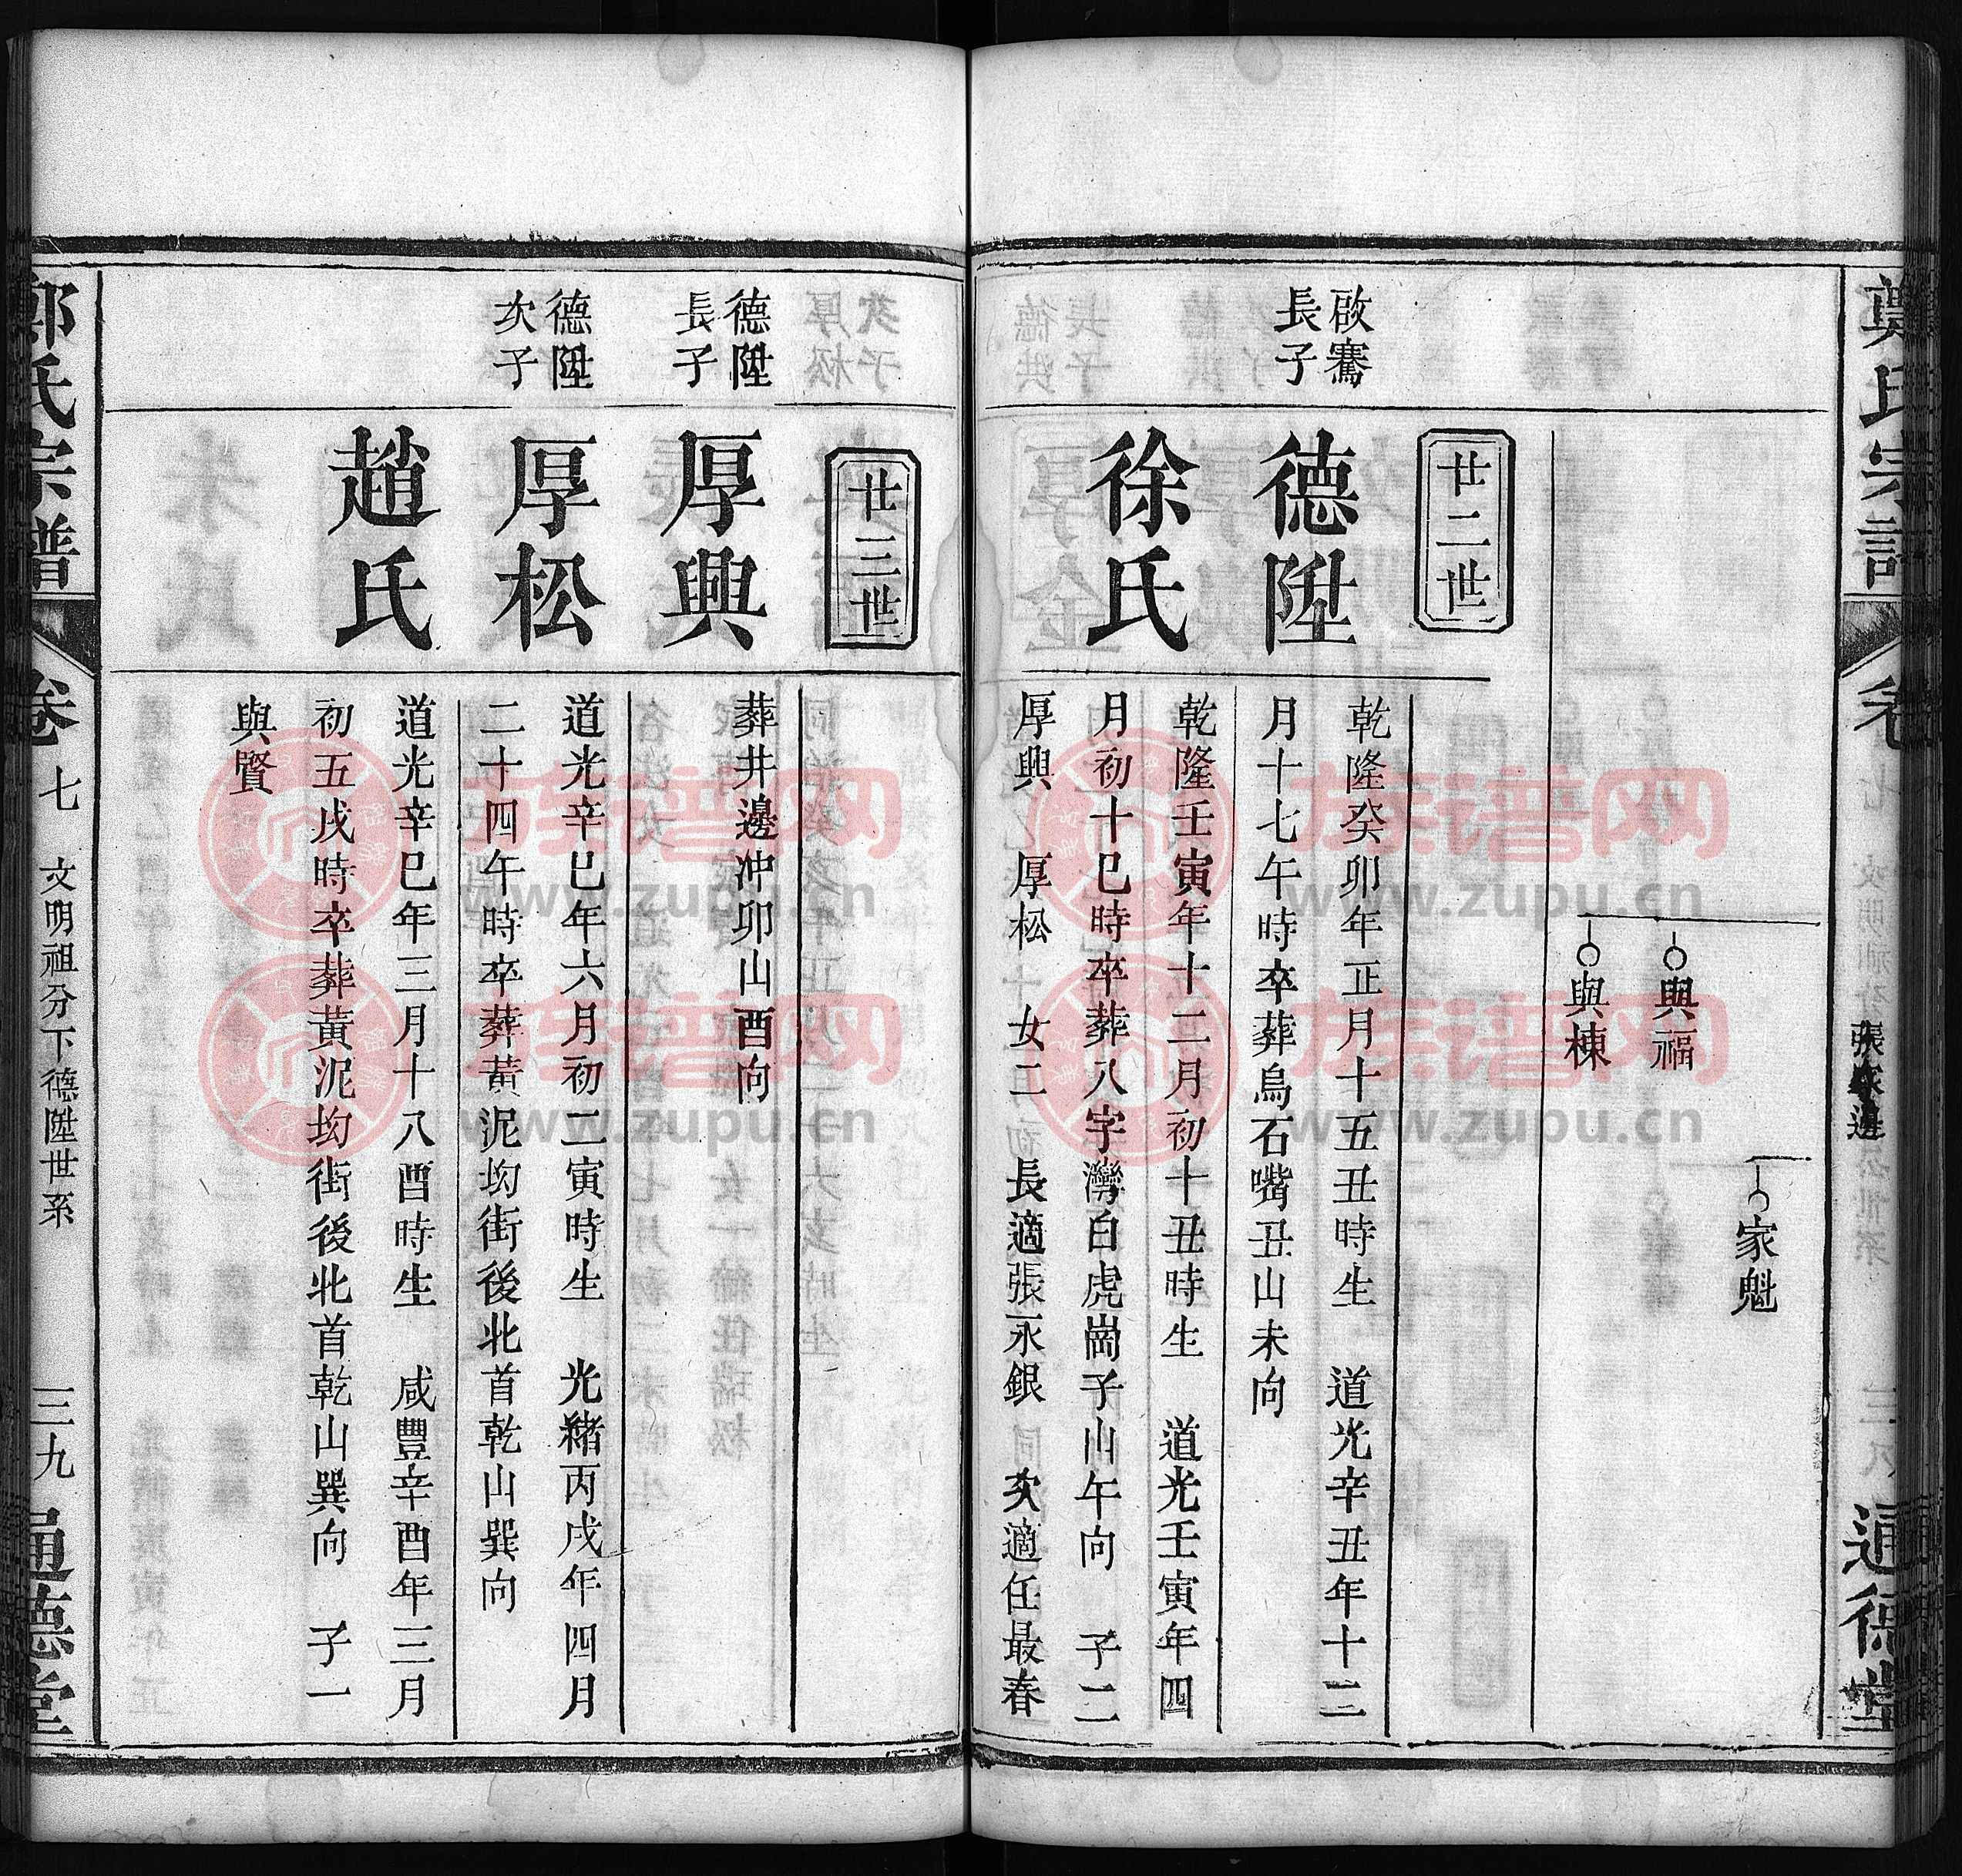 鄭氏宗譜
卷
七
三八
通德堂
張家邊
家魁
與福
與棟
廿二世
啟騫
長子
德陞
乾隆癸卯年正月十五丑時生 道光辛丑年十二
月十七午時卒葬烏石嘴丑山未向
徐氏
乾隆壬寅年十二月初十丑時生 道光壬寅年四
月初十巳時卒葬八字灣白虎崗子山午向 子二
厚興 厚松 女二 長適張永銀 次適任最春
廿三世
德陞
長子
厚興
葬井邊冲卯山酉向
德陞
次子
厚松
道光辛巳年六月初二寅時生 光緒丙戌年四月
二十四午時卒葬黃泥坳街後北首乾山巽向
趙氏
道光辛巳年三月十八酉時生 咸豐辛酉年三月
初五戌時卒葬黃泥坳街後北首乾山巽向 子一
與賢
鄭氏宗譜
卷七
文明祖分下德陞世系
三九
通德堂
族谱网
www.zupu.cn
族谱网
www.zupu.cn
族谱网
www.zupu.cn
族谱网
www.zupu.cn